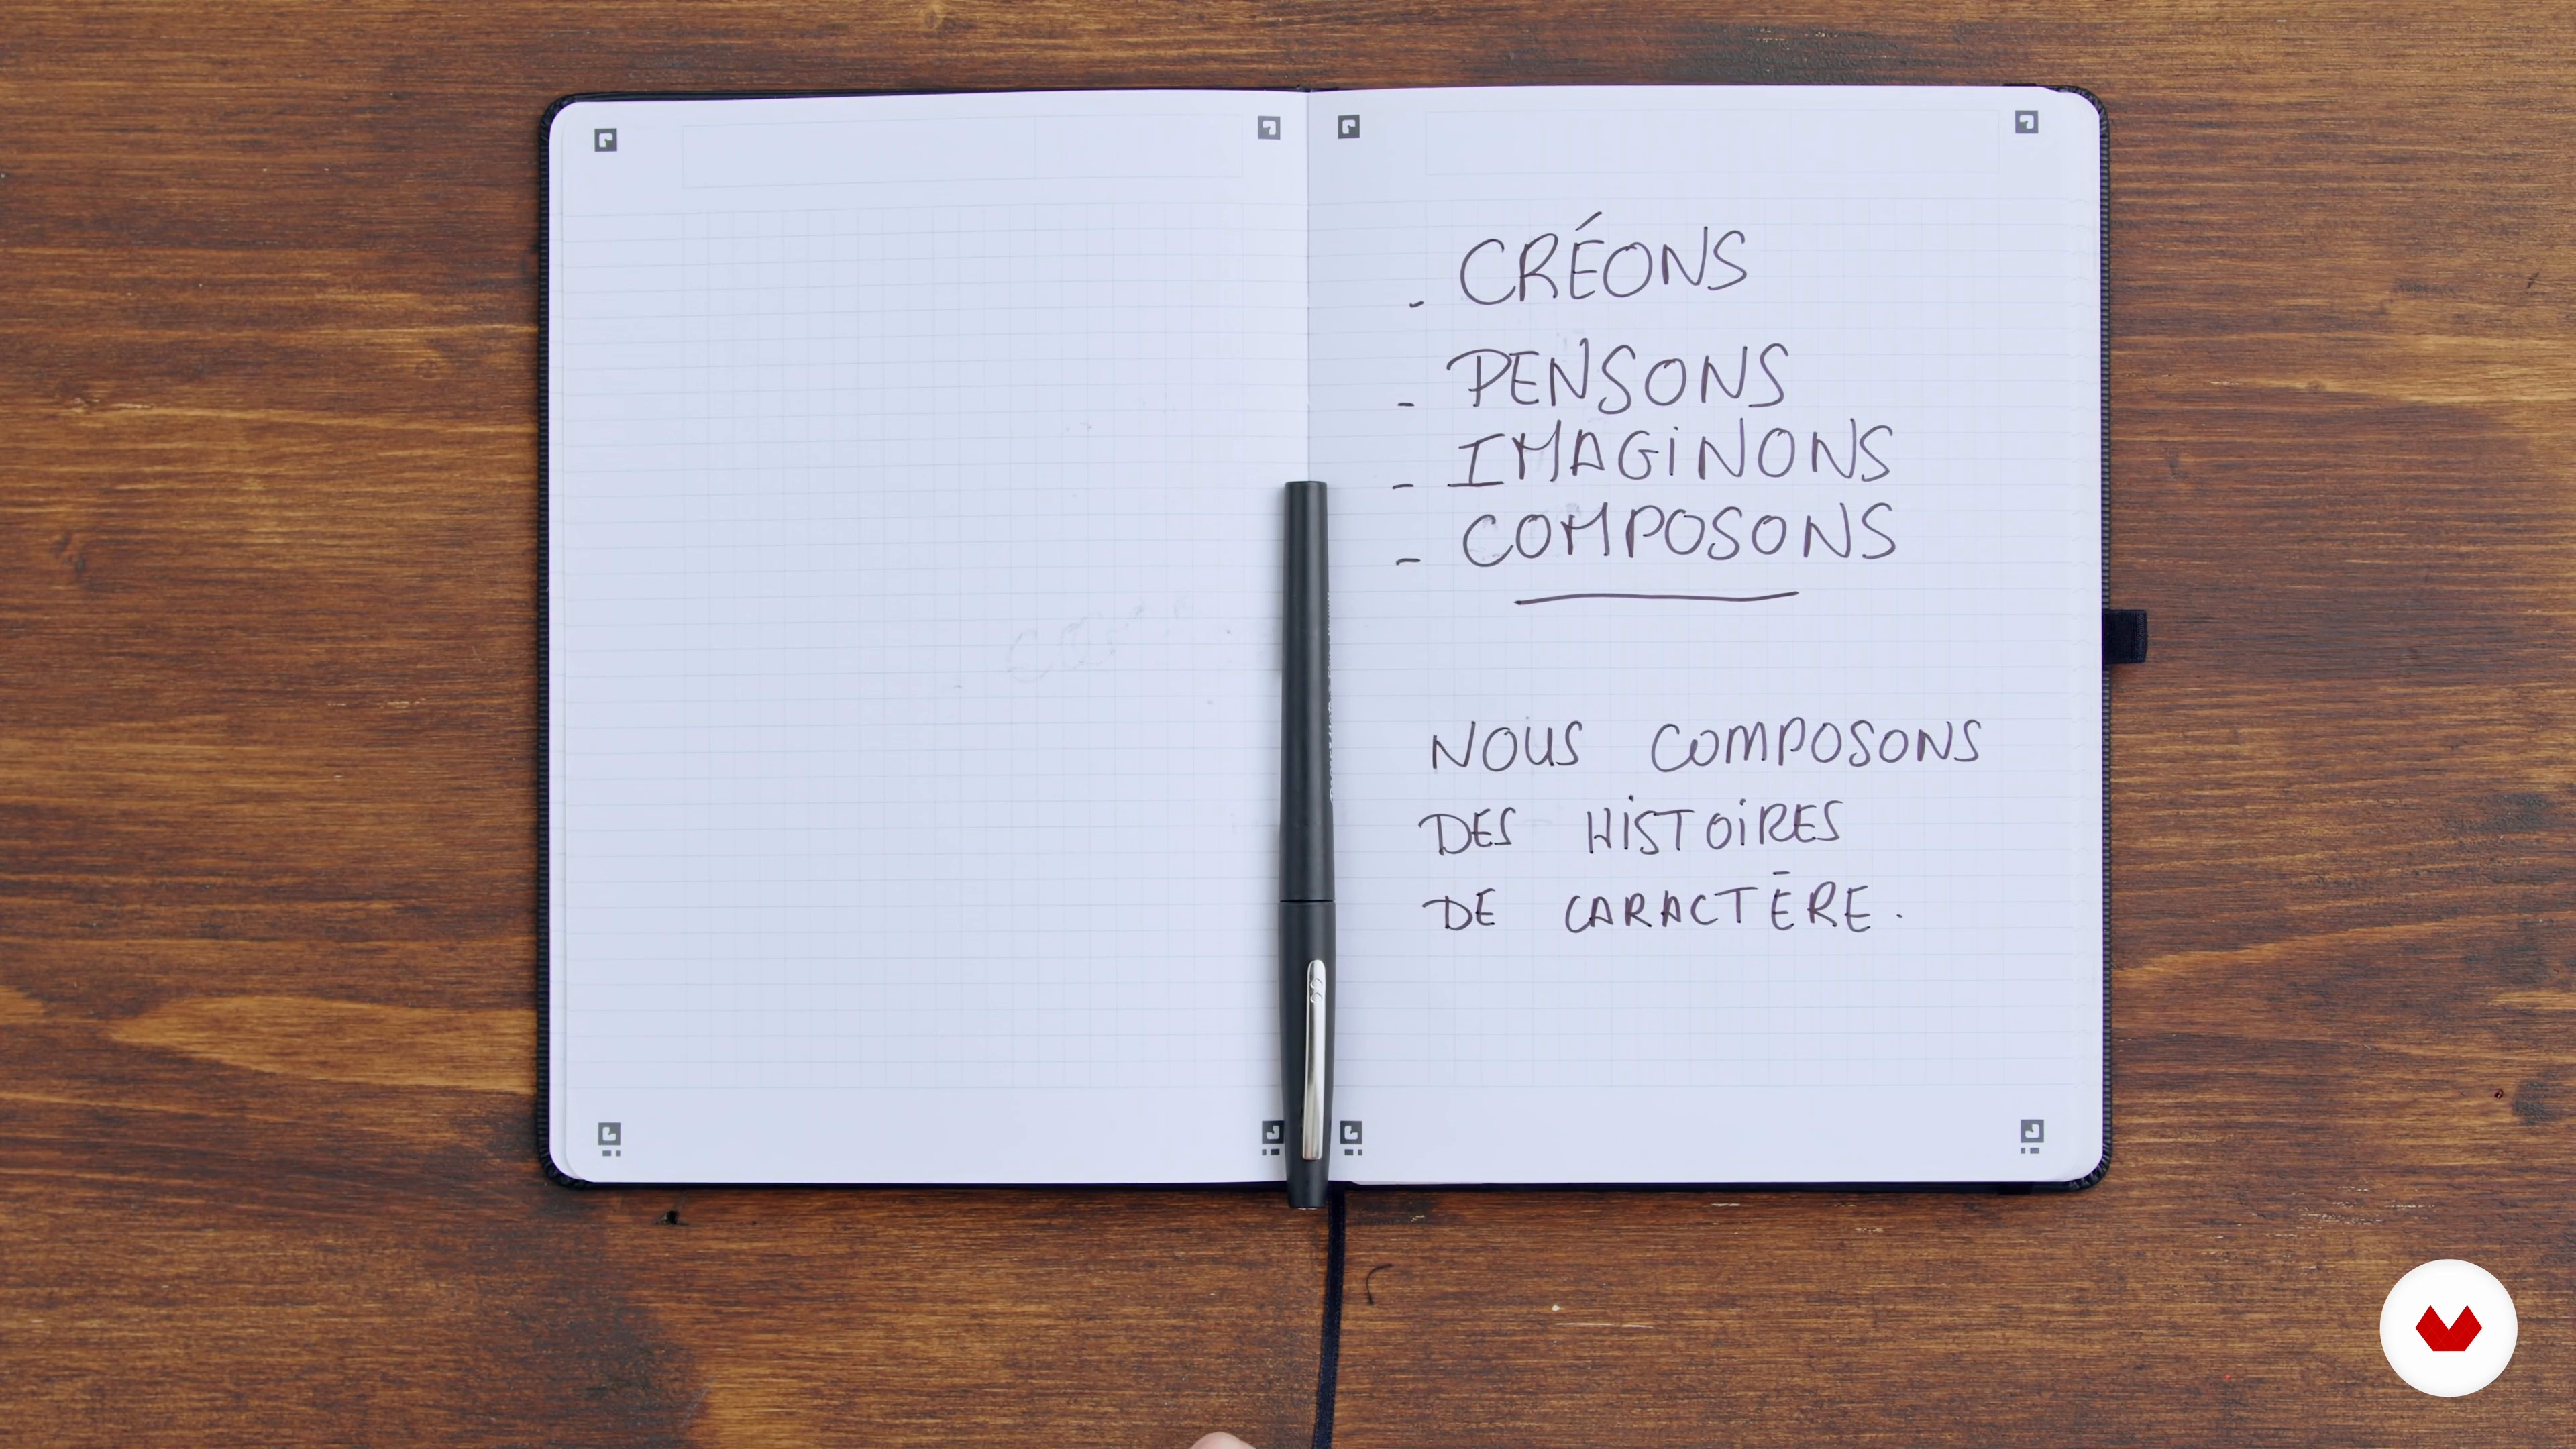 - CRÉONS
- PENSONS
- IMAGiNONS
- COMPOSONS
NOUS COMPOSONS
DES HiSTOiRES
DE CARACTĒRE.